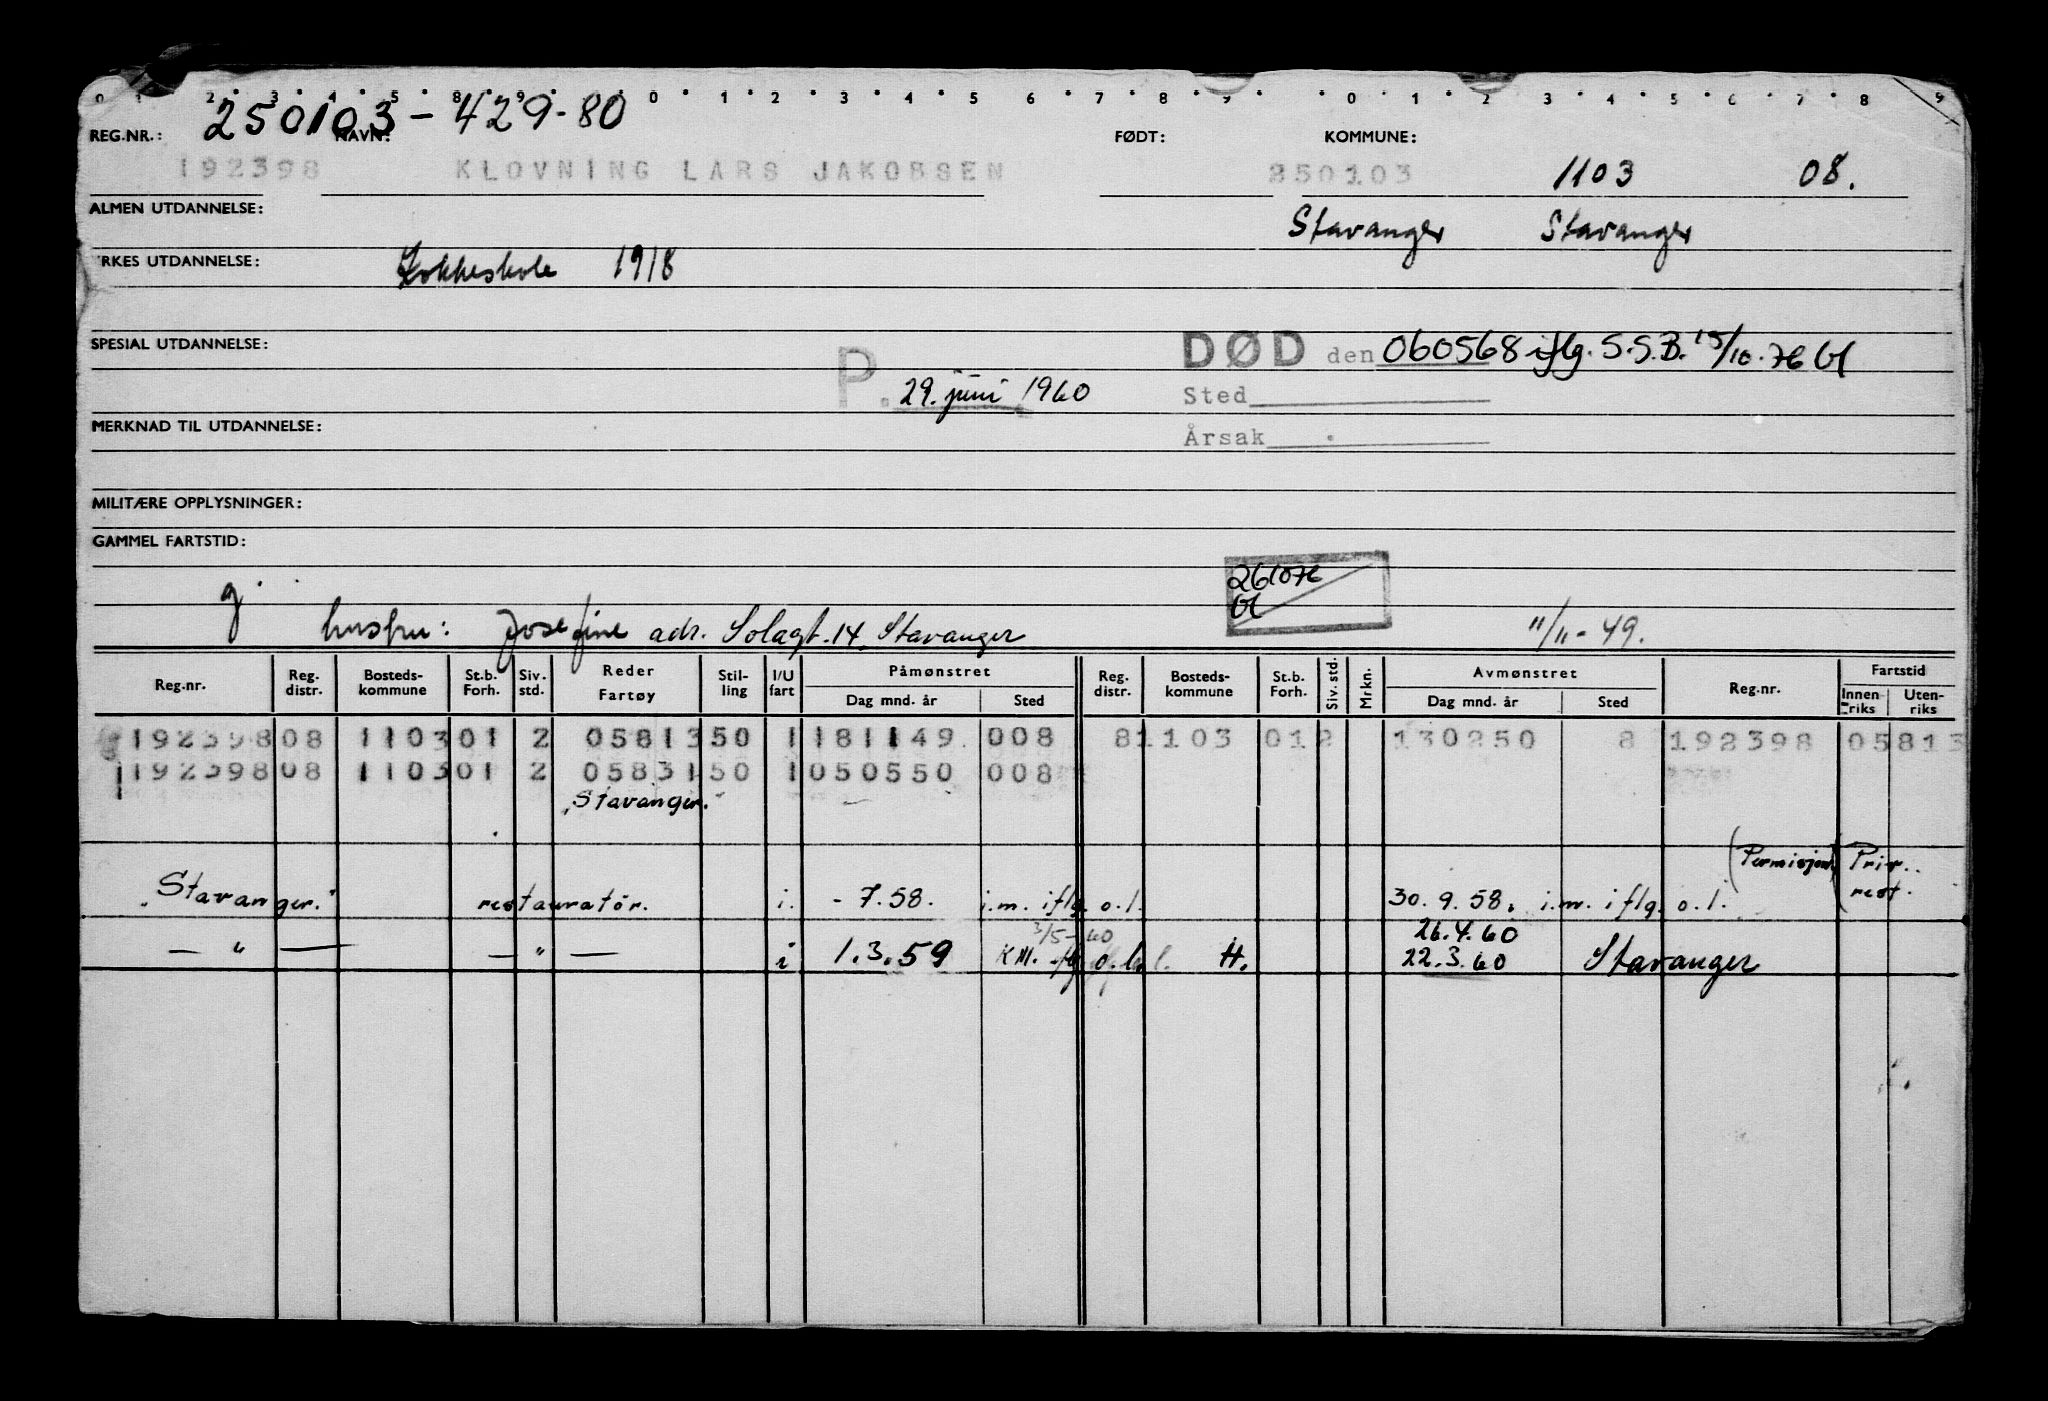 0 1 2 3 4 5 8 9 0 1 2 3 4 5 6 7 8 9 0 1 2 3 4 5 6 7 8 9
250103-429-80
REG.NR.: NAVN: FØDT: KOMMUNE:
192398 KLOVNING LARS JAKOBSEN 250103 1103 08.
ALMEN UTDANNELSE: Stavanger Stavanger
RKES UTDANNELSE: Kokkeskole 1918
SPESIAL UTDANNELSE: DØD den 060568 iflg. S.S.B. 15/10.76
P. 29. juni 1960 Sted
MERKNAD TIL UTDANNELSE: Årsak
MILITÆRE OPPLYSNINGER:
GAMMEL FARTSTID:
261076
g.
hustru: Josefine adr. Solagt. 14, Stavanger 11/11-49.
Reg.nr. Reg. distr. Bosteds-kommune St.b. Forh. Siv. std. Reder Fartøy Stil-ling I/U fart Påmønstret Dag mnd. år Sted Reg. distr. Bosteds-kommune St.b. Forh. Siv. std. Mrkn. Avmønstret Dag mnd. år Sted Reg.nr. Fartstid Innen-riks Uten-riks
192398 08 1103 01 2 05813 50 1 181149 008 8 1103 01 2 130250 8 192398 05813
192398 08 1103 01 2 05831 50 1 050550 008
"Stavanger."
(Permisjon) Priv. rest.
"Stavanger." restauratør. i. - 7.58. i.m. iflg. o.l. 30.9.58. i.m. iflg. o.l.
3/5-60 26.4.60
— " — — " — i 1.3.59 KM. iflg. o.l. H. 22.3.60 Stavanger